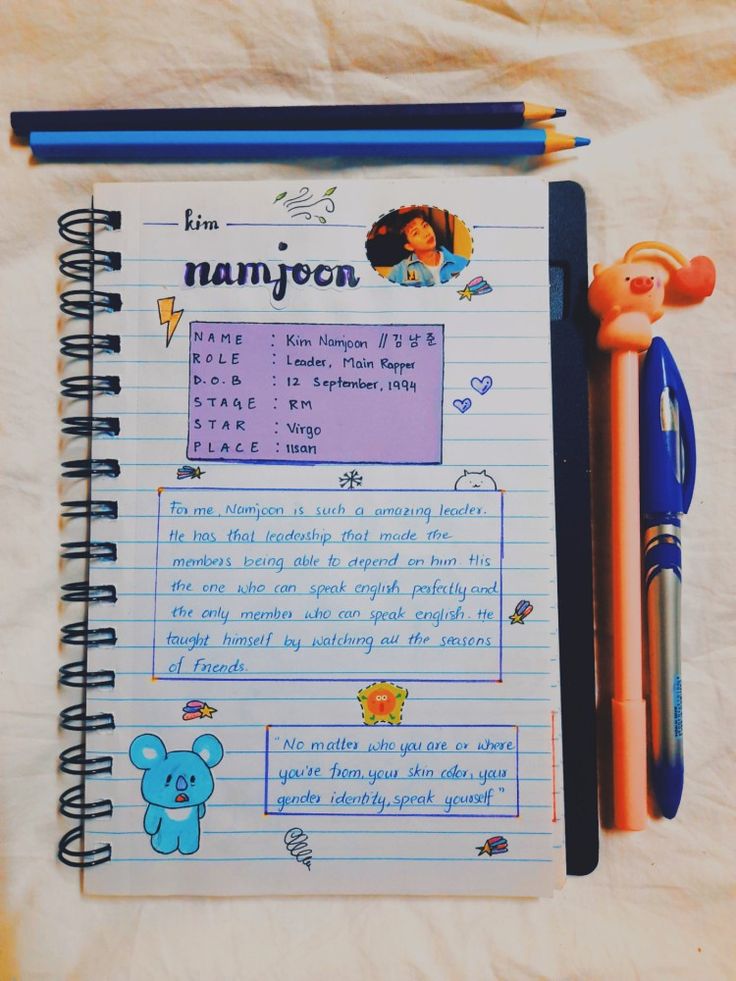 kim
namjoon
NAME : Kim Namjoon // 김남준
ROLE : Leader, Main Rapper
D.O.B : 12 September, 1994
STAGE : RM
STAR : Virgo
PLACE : Ilsan
For me, Namjoon is such a amazing leader.
He has that leadership that made the
members being able to depend on him. His
the one who can speak english perfectly and
the only member who can speak english. He
taught himself by watching all the seasons
of Friends.
"No matter who you are or where
you're from, your skin color, your
gender identity, speak yourself"